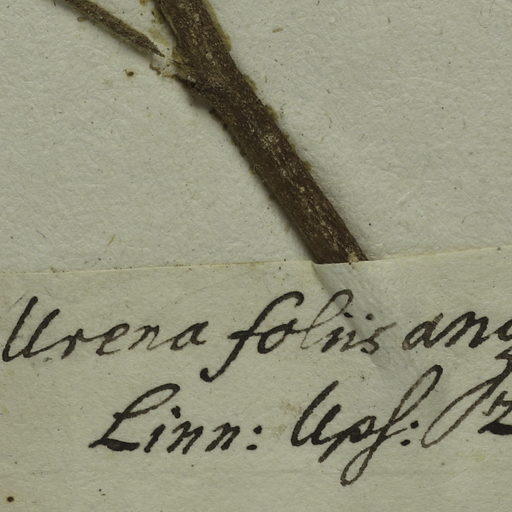 Urena foliis ang
Linn: Ups: